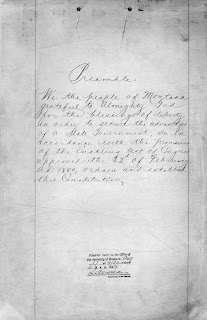 Preamble.
We the people of Montana
grateful to Almighty God
for the blessings of liberty
in order to secure the advantages
of a State Government, do in
accordance with the provisions
of the Enabling Act of Congress
approved the 22d of February
A.D. 1889, ordain and establish
this Constitution,